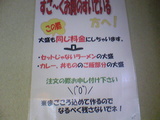 すご～くお腹のすいている
方へ！
この際
大盛も同じ料金にいたします。
・セットじゃないラーメンの大盛
・カレー、丼もののご飯部分の大盛
注文の際お申し付け下さい
まごころ込めて作るので
なるべく残さないでネ！